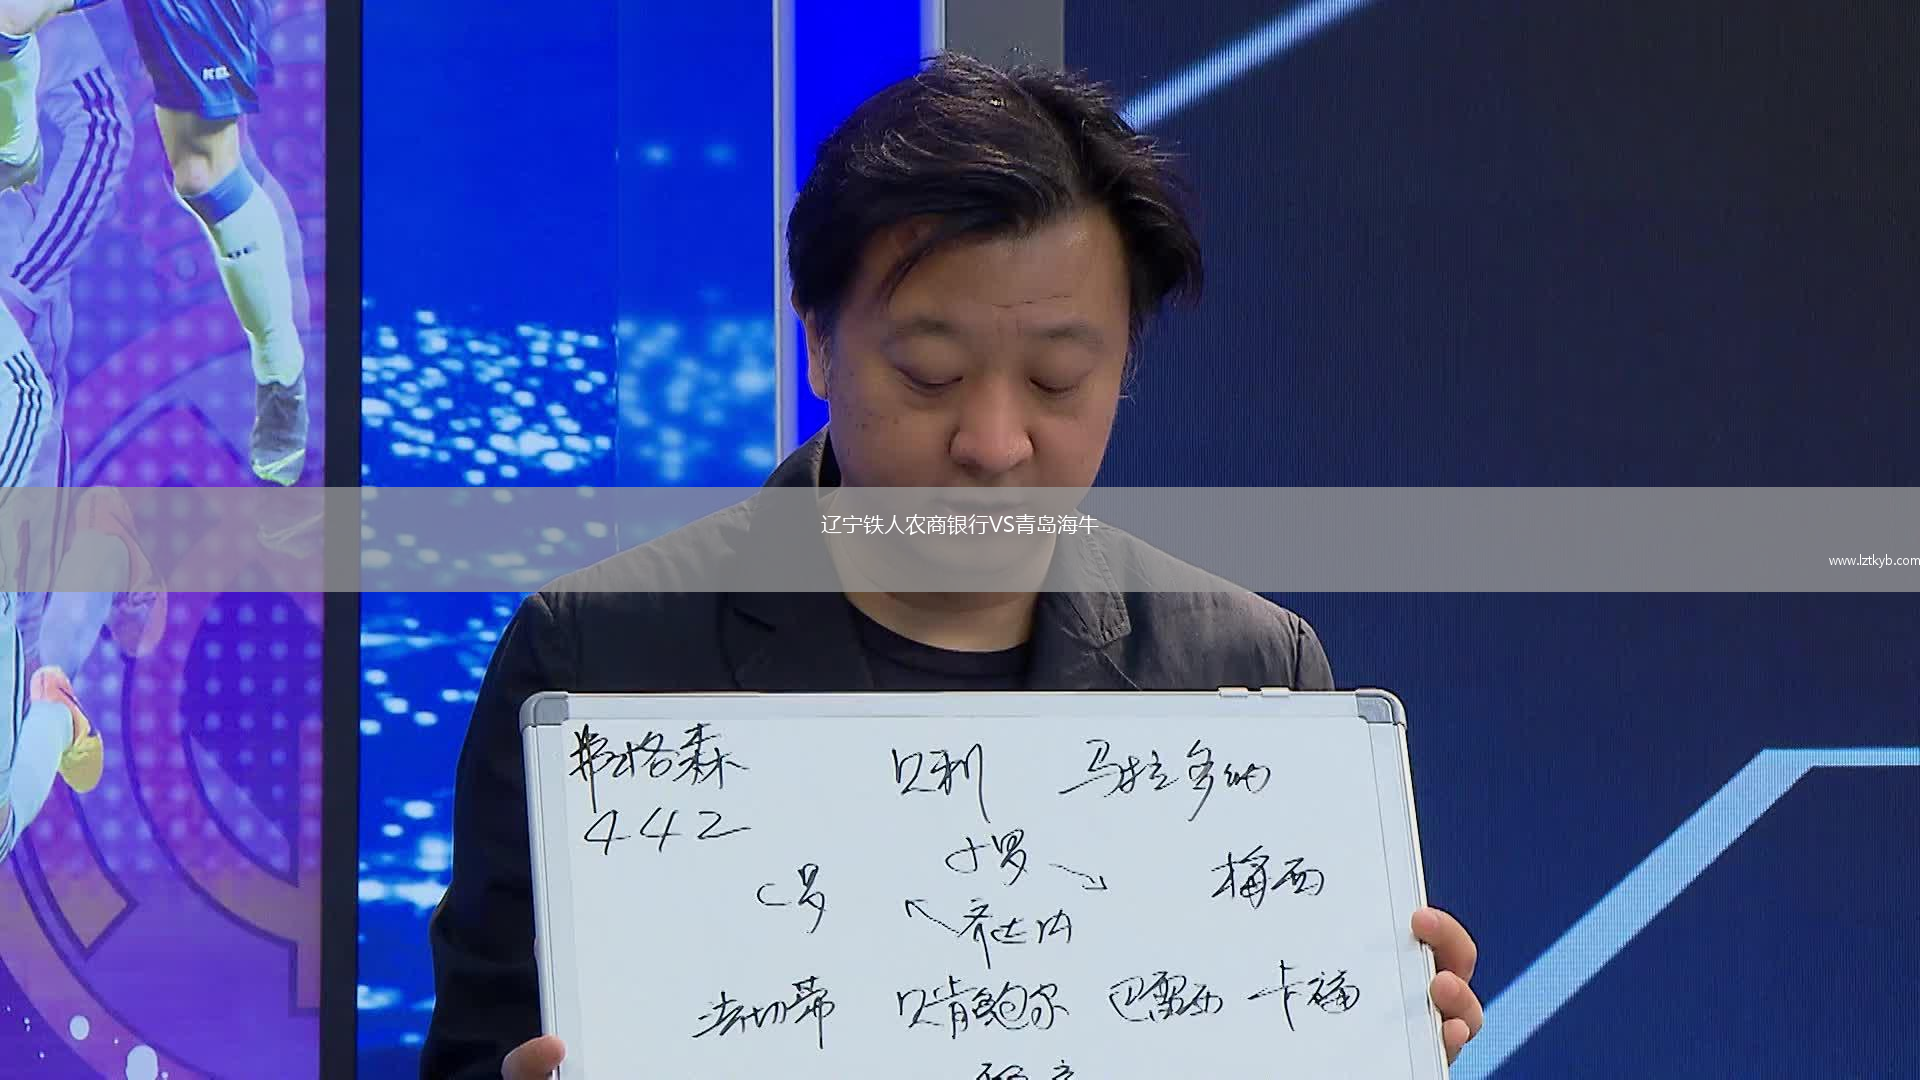 辽宁铁人农商银行VS青岛海牛
www.lztkyb.com
弗格森 贝利 马拉多纳
442
小罗
C罗 梅西
齐达内
法切蒂 贝肯鲍尔 巴雷西 卡福